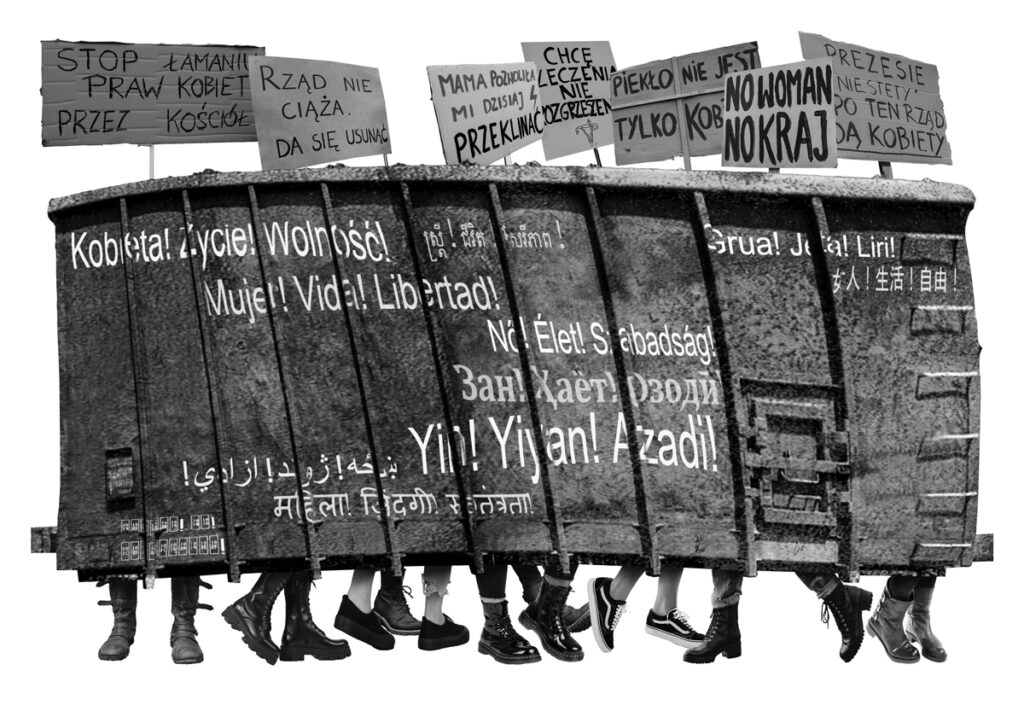 STOP ŁAMANIU
PRAW KOBIET
PRZEZ KOŚCIÓŁ
RZĄD NIE
CIĄŻA.
DA SIĘ USUNĄĆ
MAMA POZWOLIŁA
MI DZISIAJ
PRZEKLINAĆ
CHCĘ
LECZENIA
NIE
ROZGRZESZENIA
PIEKŁO NIE JEST
TYLKO KOB
NO WOMAN
NO KRAJ
PREZESIE
NIESTETY
PO TEN RZĄD
IDĄ KOBIETY
Kobieta! Życie! Wolność!
ស្ត្រី! ជីវិត! សេរីភាព!
Grua! Jeta! Liri!
女人！生活！自由！
Mujer! Vida! Libertad!
Nő! Élet! Szabadság!
Зан! Ҳаёт! Озодӣ
Yin! Yiyan! Azadi!
ښځه! ژوند! ازادي!
महिला! जिंदगी! स्वतंत्रता!